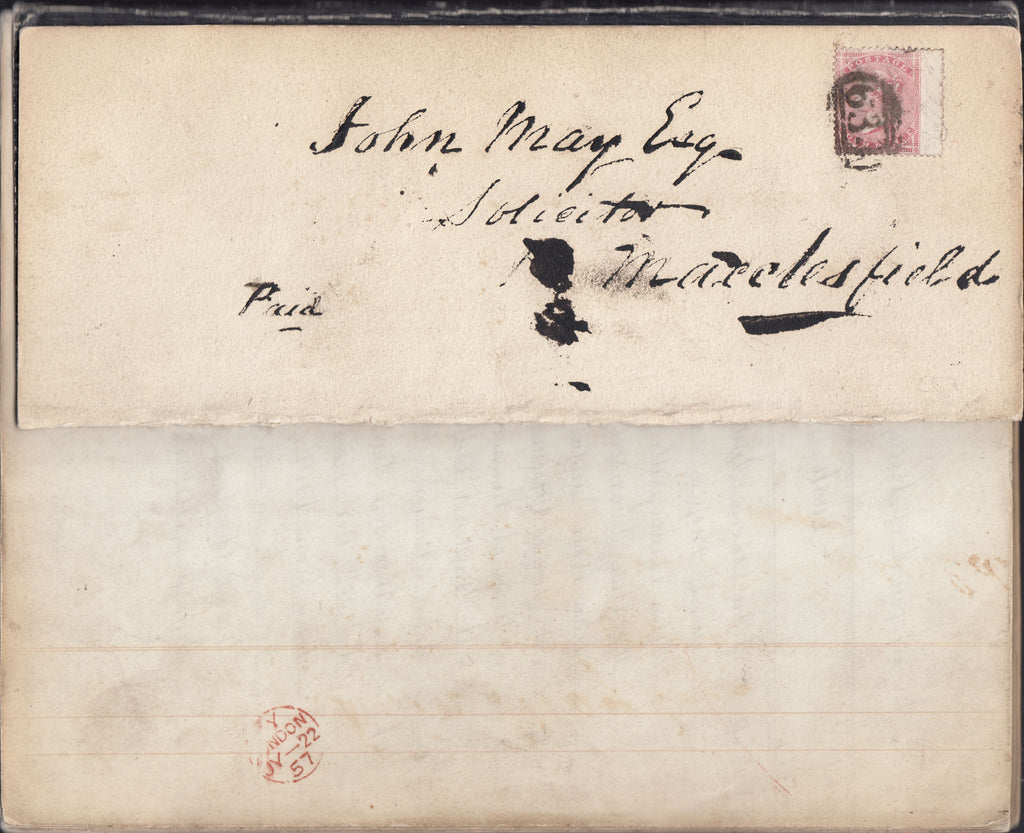 POSTAGE
63
John May Esq
Solicitor
Macclesfield
Paid
Y
LONDON
JY–22
57